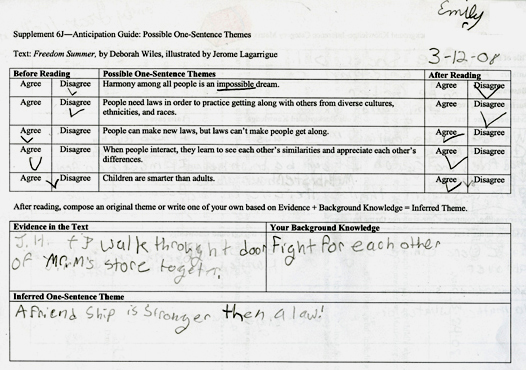 Emily
Supplement 6J—Anticipation Guide: Possible One-Sentence Themes
Text: Freedom Summer, by Deborah Wiles, illustrated by Jerome Lagarrigue
3-12-08
Before Reading Possible One-Sentence Themes After Reading
Agree Disagree Harmony among all people is an impossible dream. Agree Disagree
Agree Disagree People need laws in order to practice getting along with others from diverse cultures, Agree Disagree
ethnicities, and races.
Agree Disagree People can make new laws, but laws can't make people get along. Agree Disagree
Agree Disagree When people interact, they learn to see each other's similarities and appreciate each other's Agree Disagree
differences.
Agree Disagree Children are smarter than adults. Agree Disagree
After reading, compose an original theme or write one of your own based on Evidence + Background Knowledge = Inferred Theme.
Evidence in the Text
J.H. + J walk throught door
of Mr.M's store
Your Background Knowledge
Fight for each other
Inferred One-Sentence Theme
A friend ship is stronger then a law!